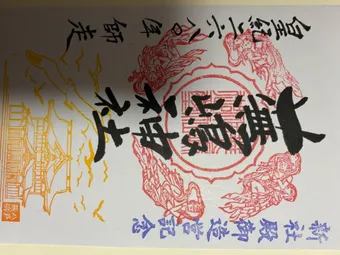 新社殿御造営記念
蕪嶋神社
皇紀二六八〇年 師走